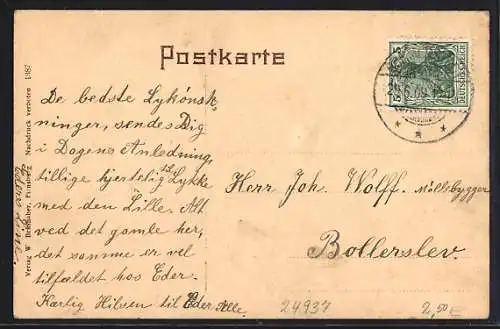 Postkarte
De bedste Lykönsk-
ninger, sendes Dig
i Dagens Anledning,
tillige hjertelig Lykke
med den Lille. Alt
ved det gamle her,
det samme er vel
tilfældet hos Eder.
Kærlig Hilsen til Eder Alle.
Herr Joh. Wolff. Müllebygger
Bollerslev.
Verlag W. Nachdruck verboten 1987
DEUTSCHES REICH
5 5
24937
2,50 €